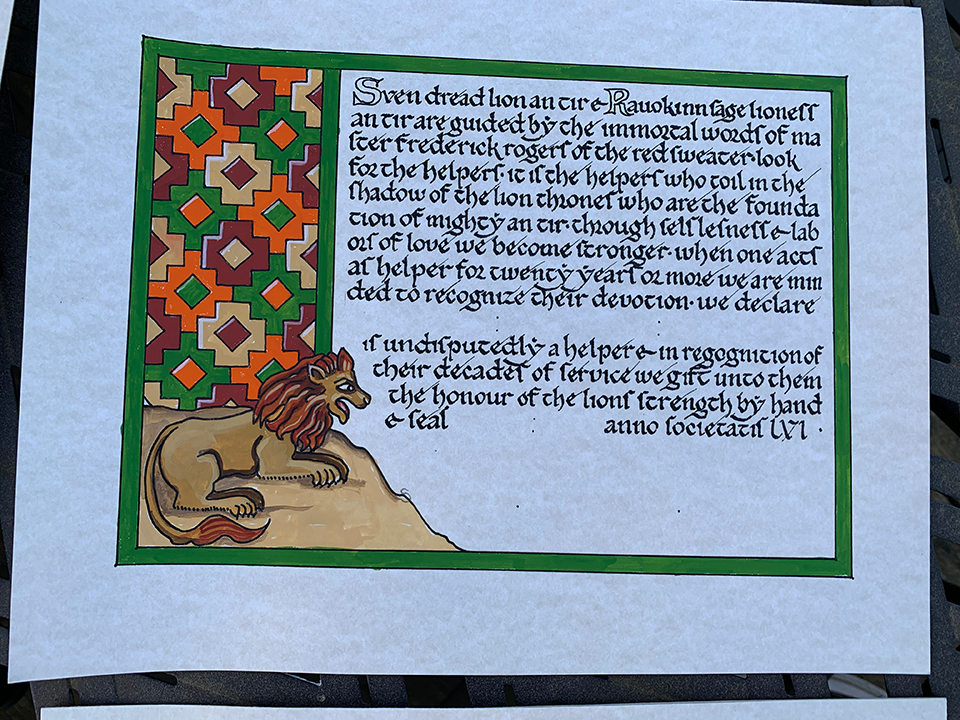 Sven dread lion an tir & Rauokinn sage lioness
an tir are guided by the immortal words of ma
ster frederick rogers of the red sweater · look
for the helpers · it is the helpers who toil in the
shadow of the lion thrones who are the founda
tion of mighty an tir · through selflesness & lab
ors of love we become stronger · when one acts
as helper for twenty years or more we are min
ded to recognize their devotion · we declare
is undisputedly a helper & in regognition of
their decades of service we gift unto them
the honour of the lions strength by hand
& seal anno societatis LXI ·